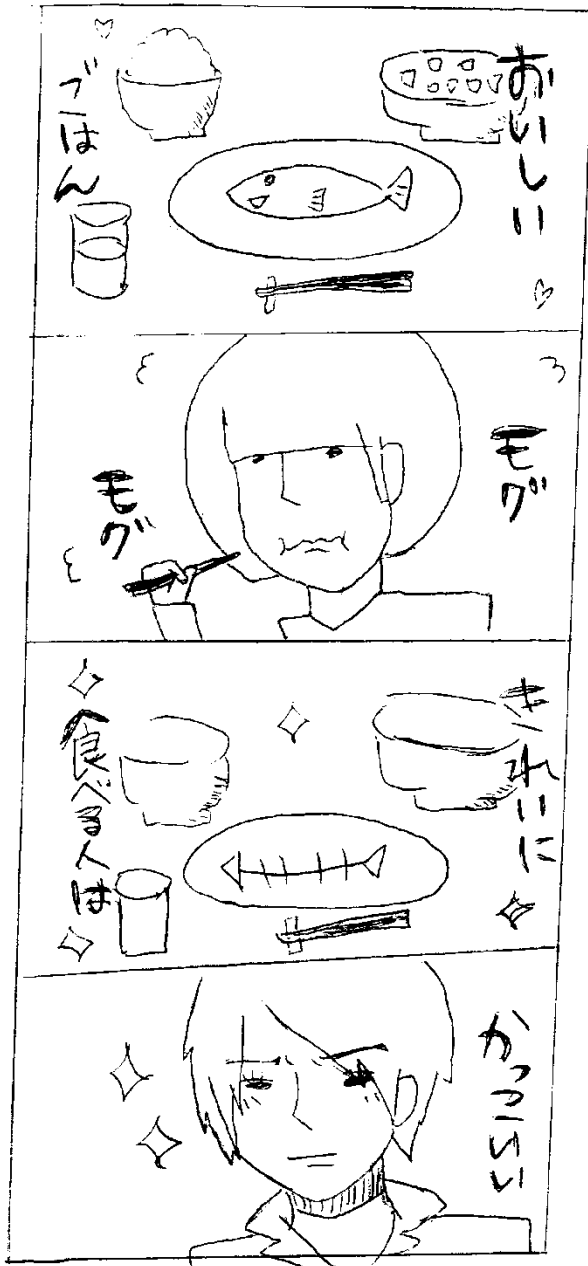 おいしい
ごはん
モグ
モグ
きれいに
食べる人は
かっこいい